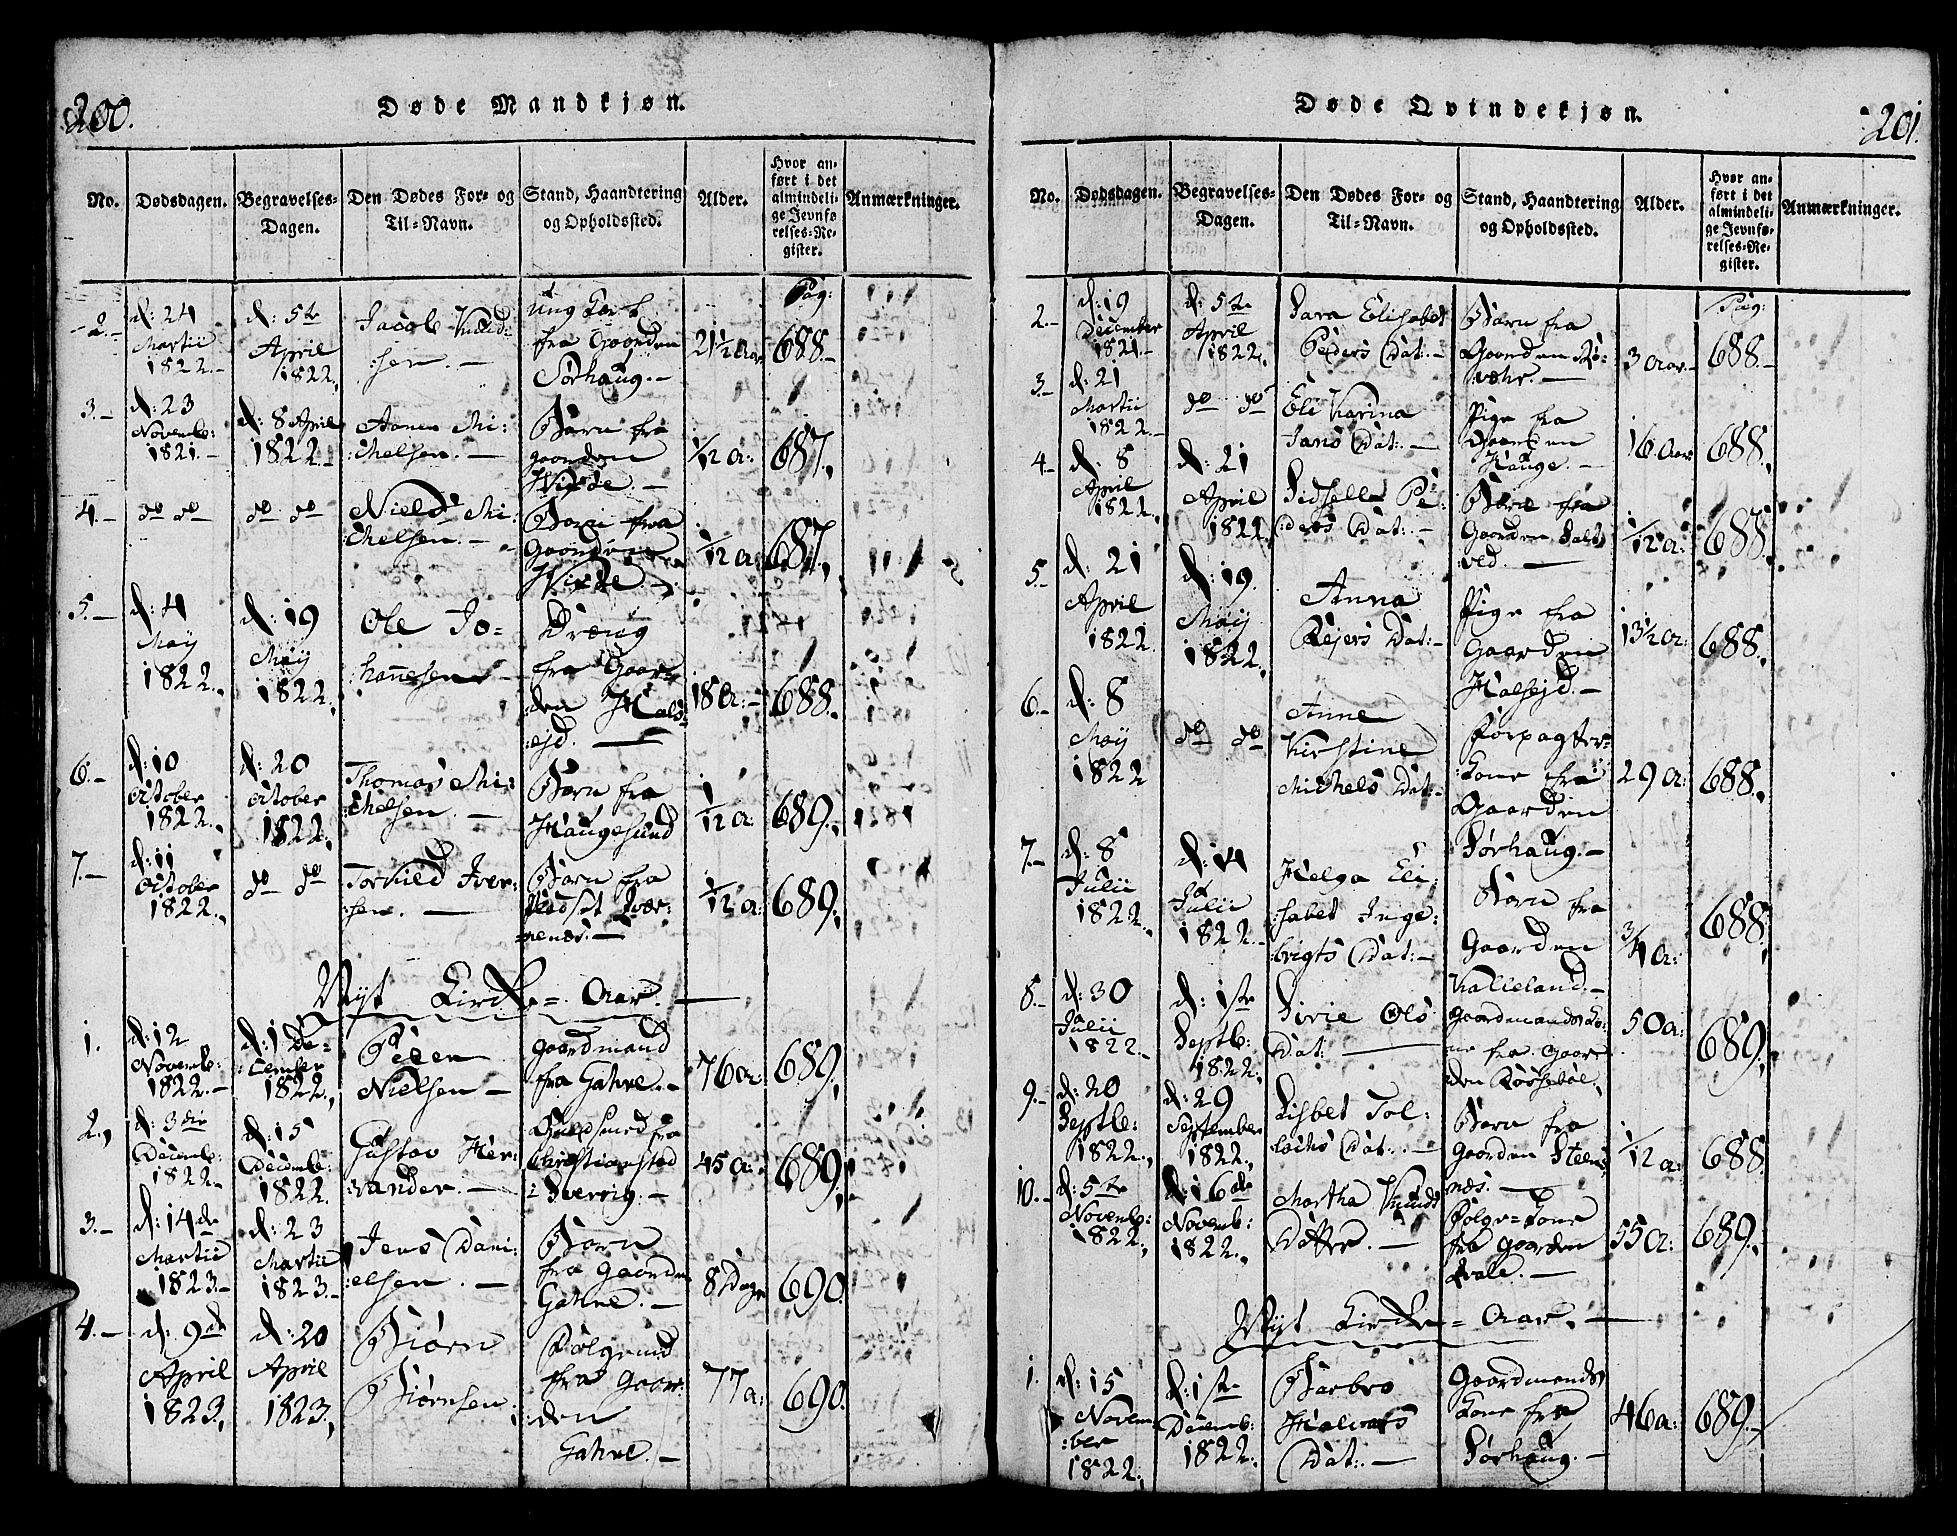 200.
Døde Mandkjøn.
No.
Dødsdagen.
Begravelses-
Dagen.
Den Dødes For- og
Til-Navn.
Stand, Haandtering
og Opholdssted.
Alder.
Hvor an-
ført i det
almindeli-
ge Jevnfø
relses-Re-
gister.
Anmærkninger.
Pag:
2.-
d: 24
Martii
1822.-
d: 5te
April
1822.
Jacob Knud-
:sen.-
ung Karl
fra Gaarden
Sørhaug.-
21½ Aar
688.-
3.-
d: 23
Novemb:
1821.-
d: 8 April
1822.-
Aamu Mi:
:chelsen.-
Barn fra
gaarden
1/12 a:
687.,
4.-
do do
do do
Niels Mi:
:chelsen.-
Barn fra
Gaarden
1/12 a:
687.,
5.-
d: 4
Maij
1822.,
d: 19
Maij
1822.
Ole Jo-
:hannesen.-
Dreng
fra Gaar-
:den Hals-
:ejd.-
18 a:-
688.
6.-
d: 10
October
1822.,
d: 20
October
1822.
Thomas Mi:
:chelsen.-
Barn fra
Haugesund
1/12 a:
689.,
7.-
d: 11
October
1822.,
do do
Torkild Iver-
:sen.-
Barn fra
Pladset Qvær-
:nenes.-
1/12 a:
689.,
Nyt Kirke-Aar.-
1.
d: 12
Novemb:
1822.-
d: 1 De-
:cember
1822.,
Peder
Nielsen-
gaardmand
fra Gahre.-
76 a:
689.,
2.,
d: 3die
Decemb:
1822.-
d: 15
Decemb:
1822.
Gustav Her-
:vander.-
Guldsmed fra
Christianstad
i Sverrig.-
45 a:
689.,
3.-
d: 14de
Martii
1823.-
d: 23
Martii
1823.-
Jens Dani:
:elsen.-
Barn
fra Gaarden
Gahre.-
8 Dage
690.
4.-
d: 9de
April
1823.,
d: 20
April
1823.
Biørn
Biørnsen.
Følgemd
fra Gaar:
:den
Gahre.-
77 a:
690.
201.
Døde Qvindekjøn.
No.
Dødsdagen.
Begravelses-
Dagen.
Den Dødes For- og
Til-Navn.
Stand, Haandtering
og Opholdssted.
Alder.
Hvor an-
ført i det
almindeli-
ge Jevnfø-
relses-Re-
gister.
Anmærkninger.
Pag:
2.-
d: 19
December
1821.-
d: 5te
April
1822.
Sara Elisabet
Peders Dat:-
Barn fra
Gaarden Rø-
:væhr.-
3 Aar.-
688.-
3.-
d: 21
Martii
1822.-
do do
Eli Karina
Jans Dat:-
Pige fra
Gaarden
Hauge.-
16 Aar
688.,
4-
d: 8
April
1822.,
d: 21
April
1822.
Sidselle Pe-
:ders Dat:-
Barn fra
Gaarden Salt-
:ved.-
1/12 a:
688.
5.-
d: 21
April
1822.
d: 19.
Maij
1822.
Anna
Rejers Dat:-
Pige fra
Gaarden
Halsejd.-
13½ a:
688.,
6.-
d: 8
Maij
1822
do do
Anne
Kirstine
Michels Dat:-
Forpagter-
:Kone fra
Gaarden
Sørhaug.-
29 a:
688.,
7.-
d: 8
Julii
1822.,
d: 14
Julii
1822.-
Helga Eli-
:sabet Inge-
:brigts Dat:-
Barn fra
Gaarden
Kalleland.-
3/4 a:
688.
8.-
d: 30
Julii
1822.-
d: 1ste
Septb:
1822.,
Sirie Ols
Dat:-
Gaardmands Ko-
:ne fra Gaar
:den Røssebøl.
50 a:
689.,
9.-
d: 20
Septb:
1822.,
d: 29
September
1822.,
Lisbet Tol-
:lachs Dat:.-
Barn fra
Gaarden Steens-
næs.-
1/12 a:
688.
10.-
d: 5te
Novemb:
1822.,
d: 16de
Novemb:
1822.,
Martha Knuds
Datter.-
Følge-Kone
fra Gaarden
Qvale.-
55 a:
689.,
Nyt Kirke-Aar.-
1.
d: 15
Novem
:ber
1822.
d: 1ste
Decemb:
1822.,
Barbro
Halvors
Dat:-
Gaardmands
Kone fra
Sørhaug.-
46 a:
689.-